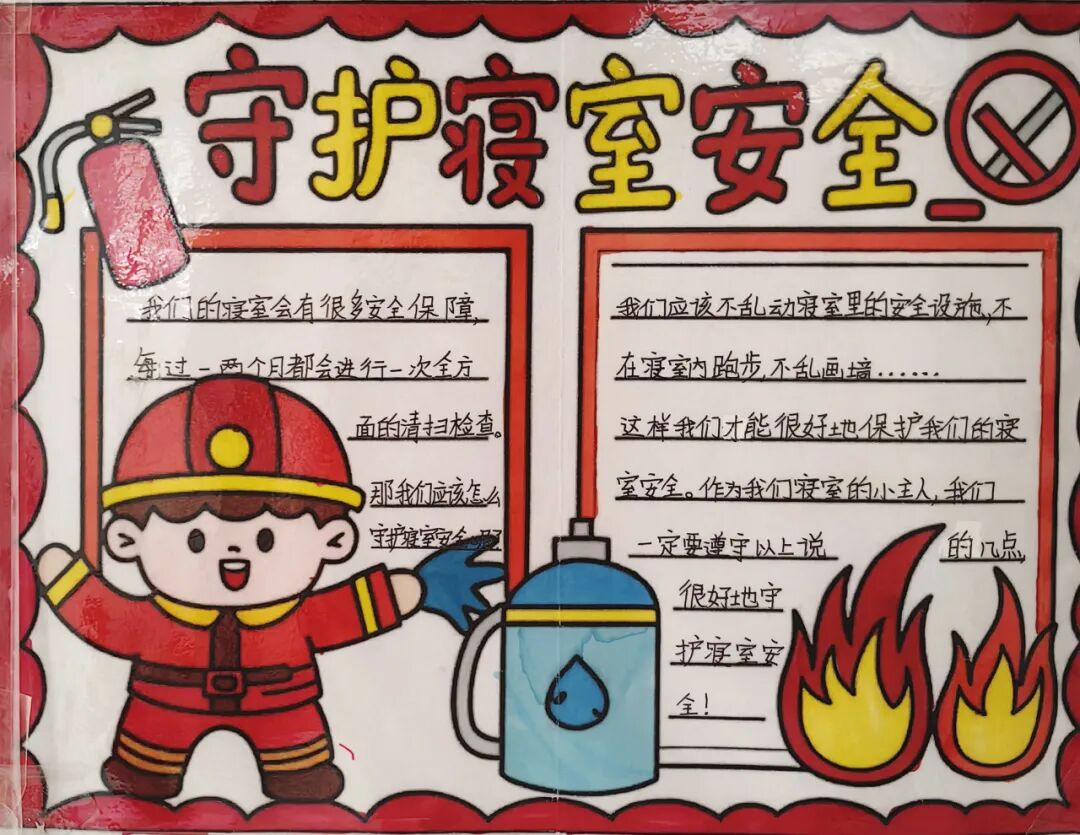 守护寝室安全
我们的寝室会有很多安全保障,
每过一两个月都会进行一次全方
面的清扫检查。
那我们应该怎么
守护寝室安全呢
我们应该不乱动寝室里的安全设施,不
在寝室内跑步,不乱画墙......
这样我们才能很好地保护我们的寝
室安全。作为我们寝室的小主人,我们
一定要遵守以上说 的几点,
很好地守
护寝室安
全!